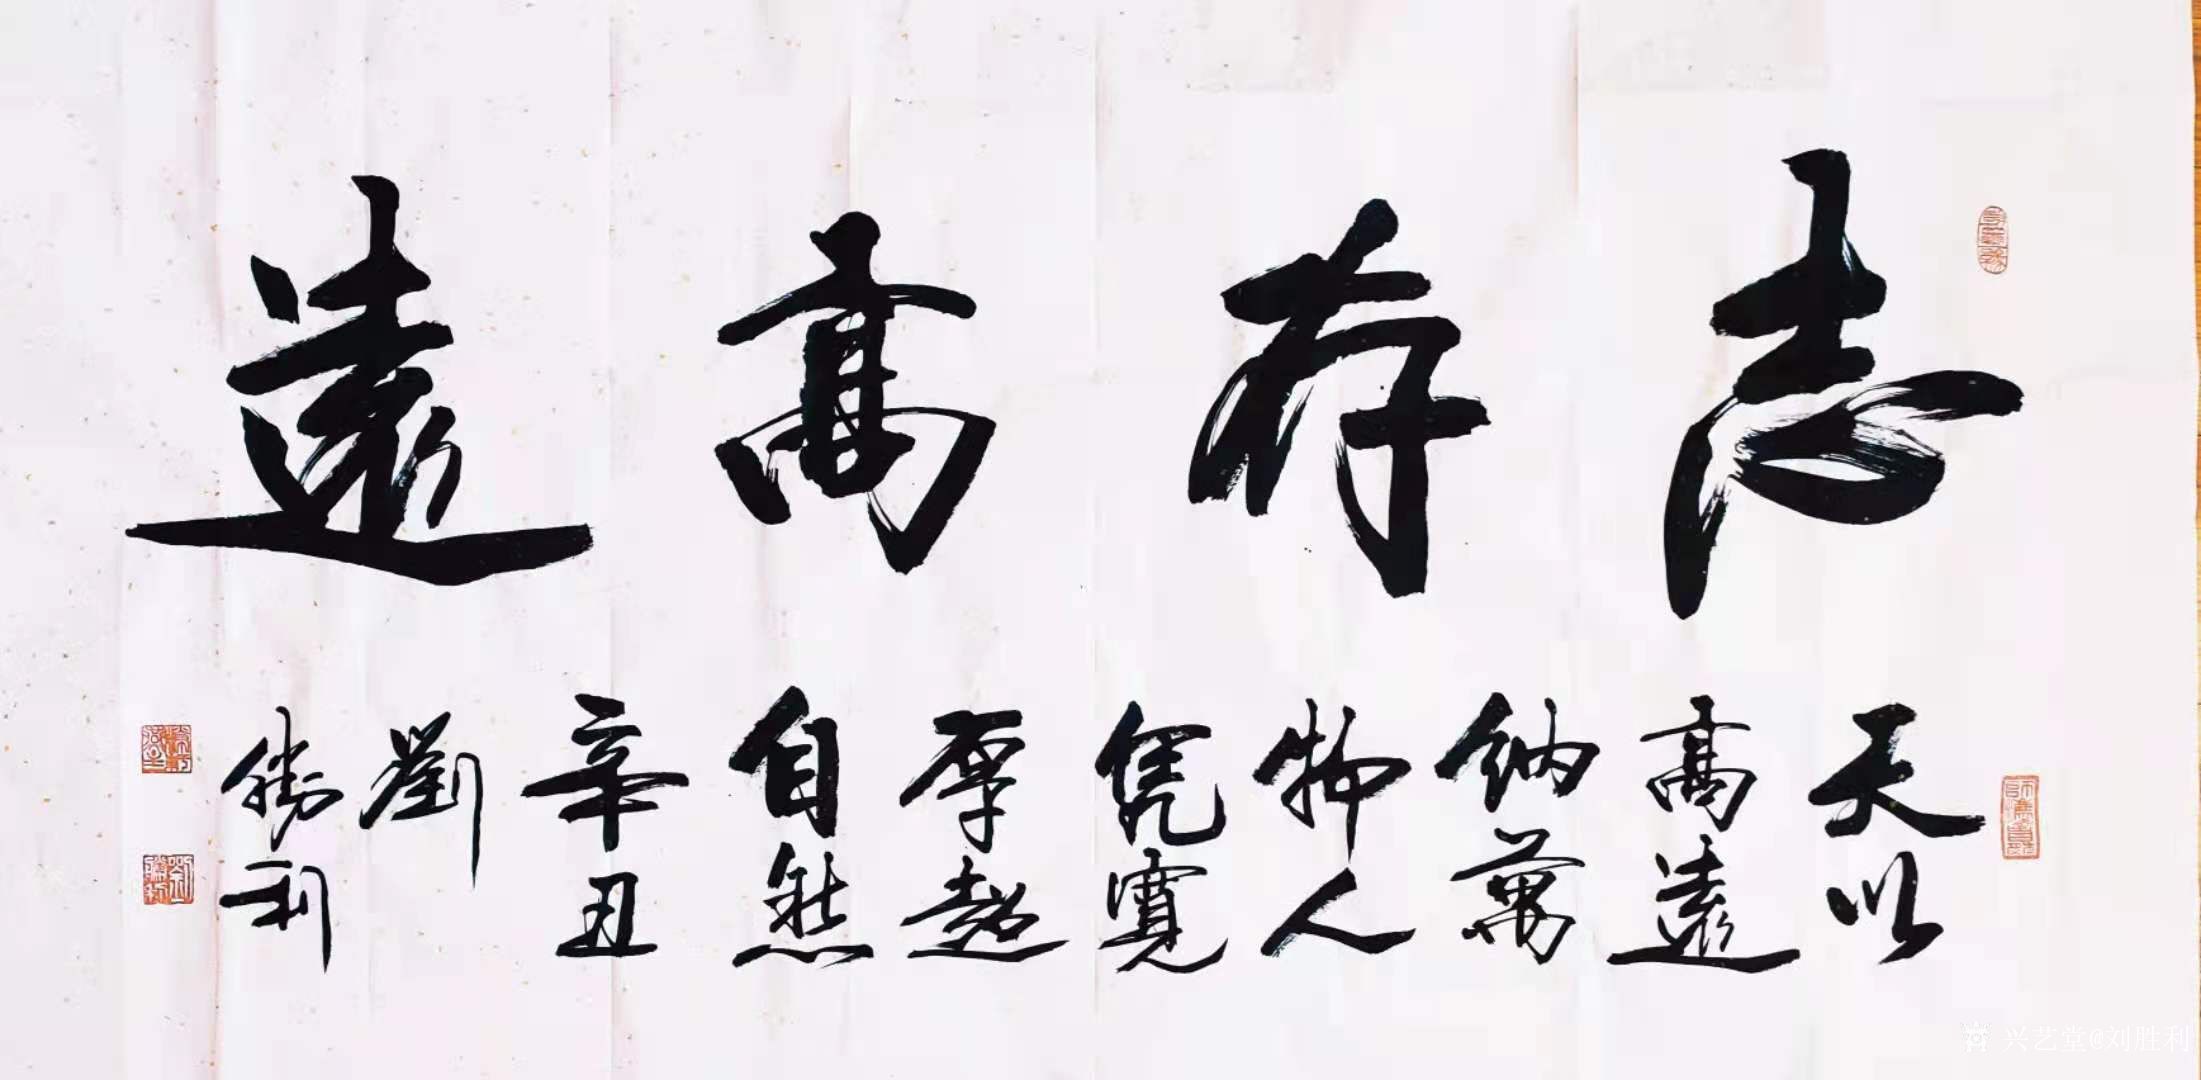 志存高遠
天以
高遠
纳萬
物人
凭寬
厚超
自然
辛丑
劉
勝利
兴艺堂@刘胜利